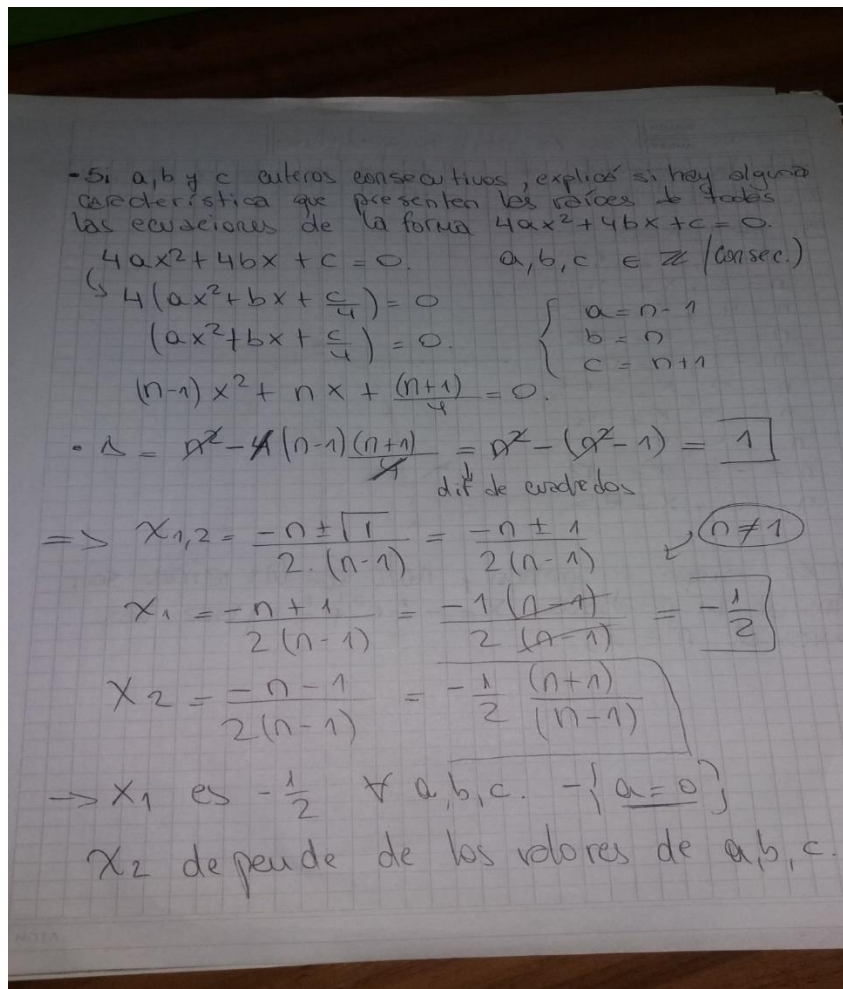 - Si a, b y c enteros consecutivos, explicá si hay alguna
característica que presenten las raíces de todas
las ecuaciones de la forma 4ax² + 4bx + c = 0.
4ax² + 4bx + c = 0. a, b, c ∈ ℤ / (consec.)
↳ 4(ax² + bx + c/4) = 0 { a = n - 1
(ax² + bx + c/4) = 0. b = n
c = n + 1
(n-1) x² + n x + (n+1)/4 = 0.
· Δ = n² - 4 (n-1) (n+1)/4 = n² - (n² - 1) = 1
dif de cuadrados
=> x1,2 = (-n ± √1)/(2·(n-1)) = (-n ± 1)/(2(n-1)) n ≠ 1
x1 = (-n + 1)/(2(n-1)) = (-1(n-1))/(2(n-1)) = -1/2
x2 = (-n - 1)/(2(n-1)) = -1/2 (n+1)/(n-1)
-> x1 es -1/2 ∀ a, b, c. - {a = 0}
x2 depende de los valores de a, b, c.